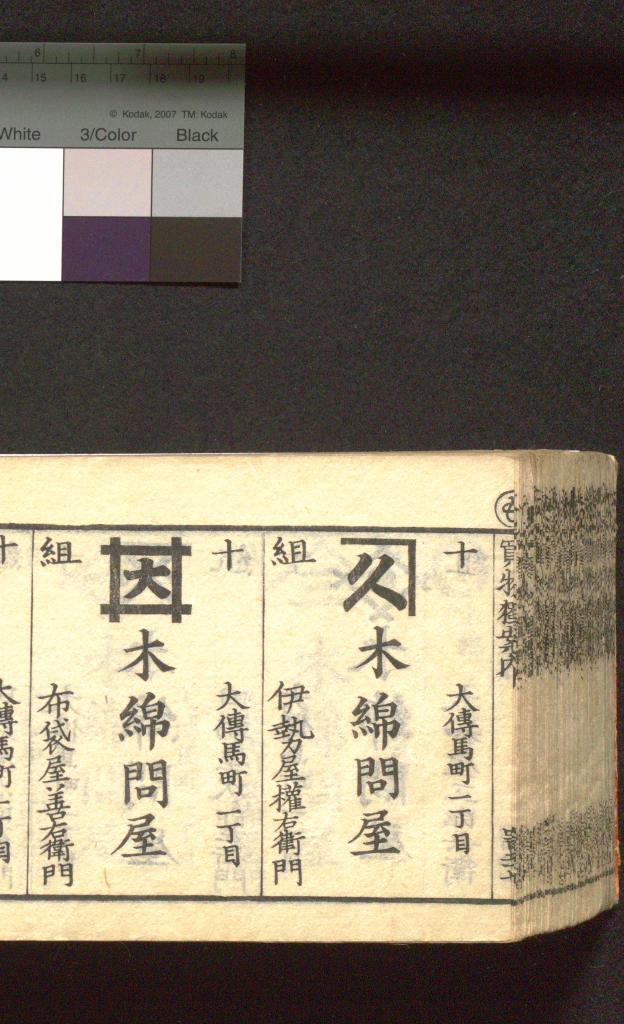 6 7 8
14 15 16 17 18 19
© Kodak, 2007 TM: Kodak
White 3/Color Black
も
買物獨案内
十
大傳馬町一丁目
久
木綿問屋
組
伊勢屋權右衛門
十
大傳馬町一丁目
大
木綿問屋
組
布袋屋善右衛門
十
大傳馬町一丁目